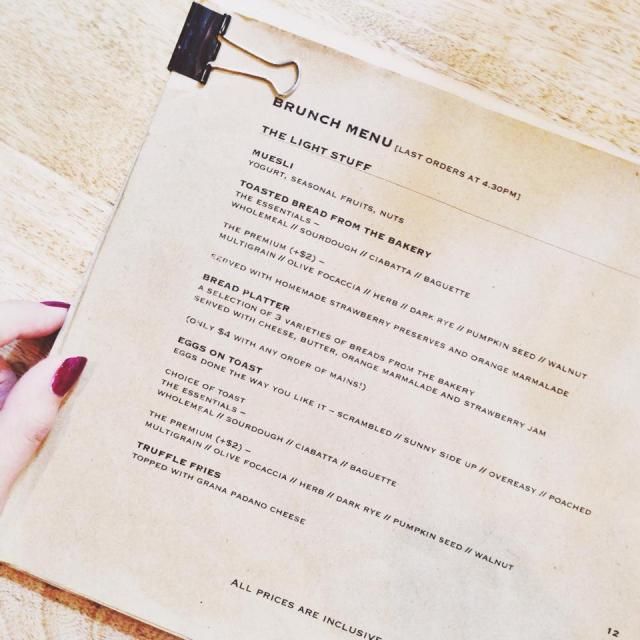 BRUNCH MENU [LAST ORDERS AT 4.30PM]
THE LIGHT STUFF
MUESLI
YOGURT, SEASONAL FRUITS, NUTS
TOASTED BREAD FROM THE BAKERY
THE ESSENTIALS –
WHOLEMEAL // SOURDOUGH // CIABATTA // BAGUETTE
THE PREMIUM (+$2) –
MULTIGRAIN // OLIVE FOCACCIA // HERB // DARK RYE // PUMPKIN SEED // WALNUT
SERVED WITH HOMEMADE STRAWBERRY PRESERVES AND ORANGE MARMALADE
BREAD PLATTER
A SELECTION OF 3 VARIETIES OF BREADS FROM THE BAKERY
SERVED WITH CHEESE, BUTTER, ORANGE MARMALADE AND STRAWBERRY JAM
(ONLY $4 WITH ANY ORDER OF MAINS!)
EGGS ON TOAST
EGGS DONE THE WAY YOU LIKE IT – SCRAMBLED // SUNNY SIDE UP // OVEREASY // POACHED
CHOICE OF TOAST
THE ESSENTIALS –
WHOLEMEAL // SOURDOUGH // CIABATTA // BAGUETTE
THE PREMIUM (+$2) –
MULTIGRAIN // OLIVE FOCACCIA // HERB // DARK RYE // PUMPKIN SEED // WALNUT
TRUFFLE FRIES
TOPPED WITH GRANA PADANO CHEESE
12
ALL PRICES ARE INCLUSIVE